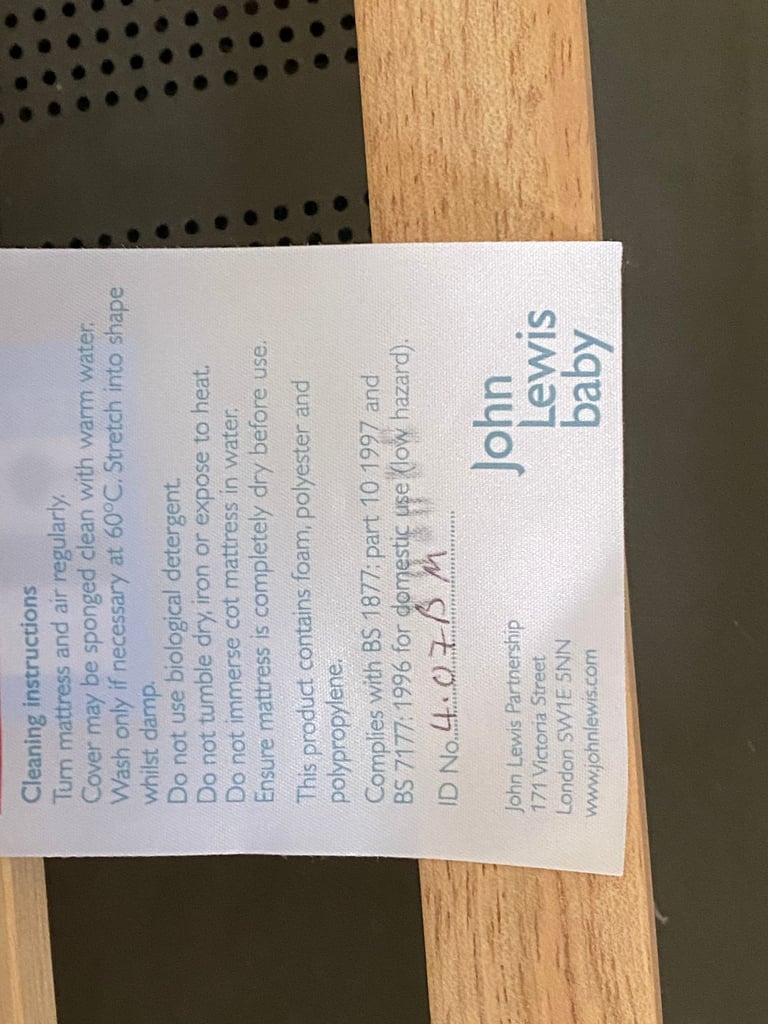 Cleaning instructions
Turn mattress and air regularly.
Cover may be sponged clean with warm water.
Wash only if necessary at 60°C. Stretch into shape
whilst damp.
Do not use biological detergent.
Do not tumble dry, iron or expose to heat.
Do not immerse cot mattress in water.
Ensure mattress is completely dry before use.
This product contains foam, polyester and
polypropylene.
Complies with BS 1877: part 10 1997 and
BS 7177: 1996 for domestic use (low hazard).
ID No. 4.07BM
John Lewis Partnership
171 Victoria Street
London SW1E 5NN
www.johnlewis.com
John
Lewis
baby